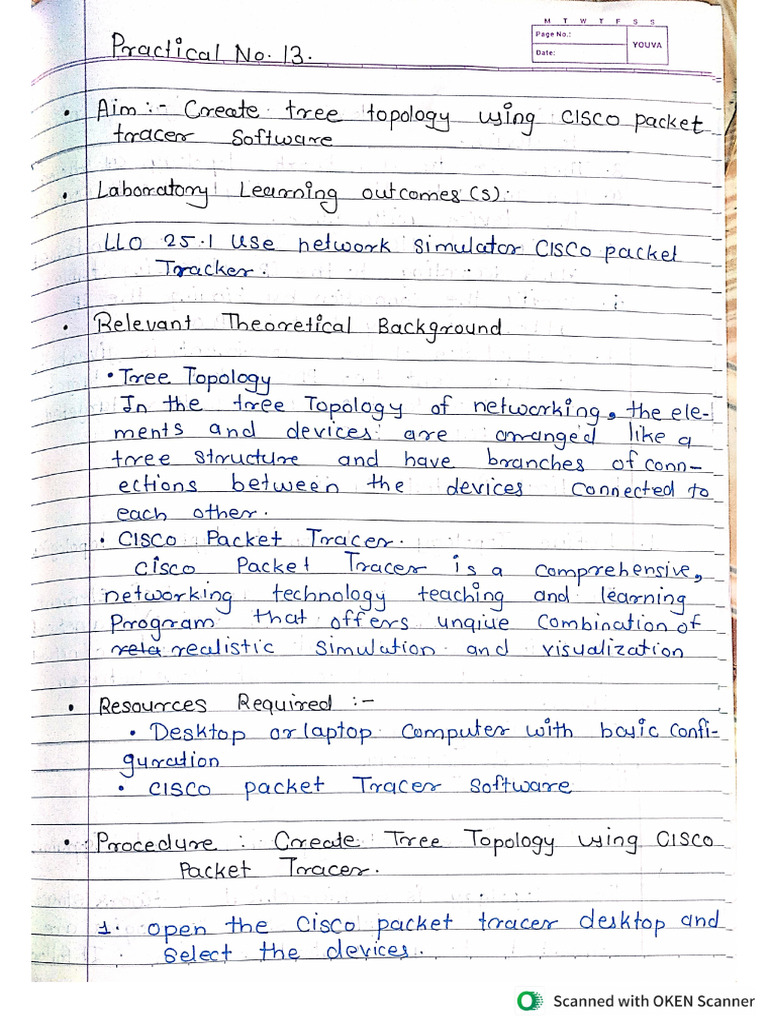 M T W T F S S
Page No.:
Date:
YOUVA
Practical No. 13.
• Aim :- Create tree topology using CISCO packet
tracer Software
• Laboratory Learning outcomes(s).
LLO 25.1 Use network simulator CISCO packet
Tracker.
• Relevant Theoretical Background
• Tree Topology
In the tree Topology of networking, the ele-
ments and devices are arranged like a
tree structure and have branches of conn-
ections between the devices connected to
each other.
• CISCO Packet Tracer.
Cisco Packet Tracer is a comprehensive,
networking technology teaching and learning
Program that offers unqiue combination of
rela realistic simulation and visualization
• Resources Required :-
• Desktop or laptop computer with basic confi-
guration
• CISCO packet Tracer Software
• Procedure : Create Tree Topology using CISCO
Packet Tracer.
1. open the Cisco packet tracer desktop and
Select the devices.
Scanned with OKEN Scanner